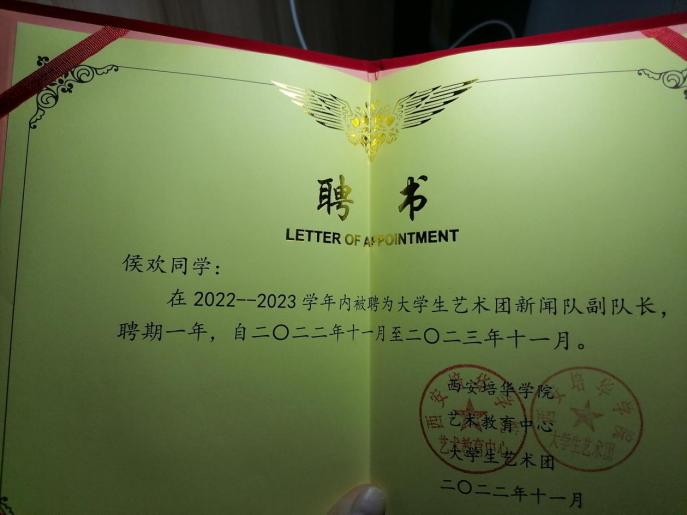 聘书
LETTER OF APPOINTMENT
侯欢同学：
在2022--2023学年内被聘为大学生艺术团新闻队副队长，
聘期一年，自二〇二二年十一月至二〇二三年十一月。
西安培华学院
艺术教育中心
大学生艺术团
二〇二二年十一月
西安培华学院
艺术教育中心
西安培华学院
大学生艺术团